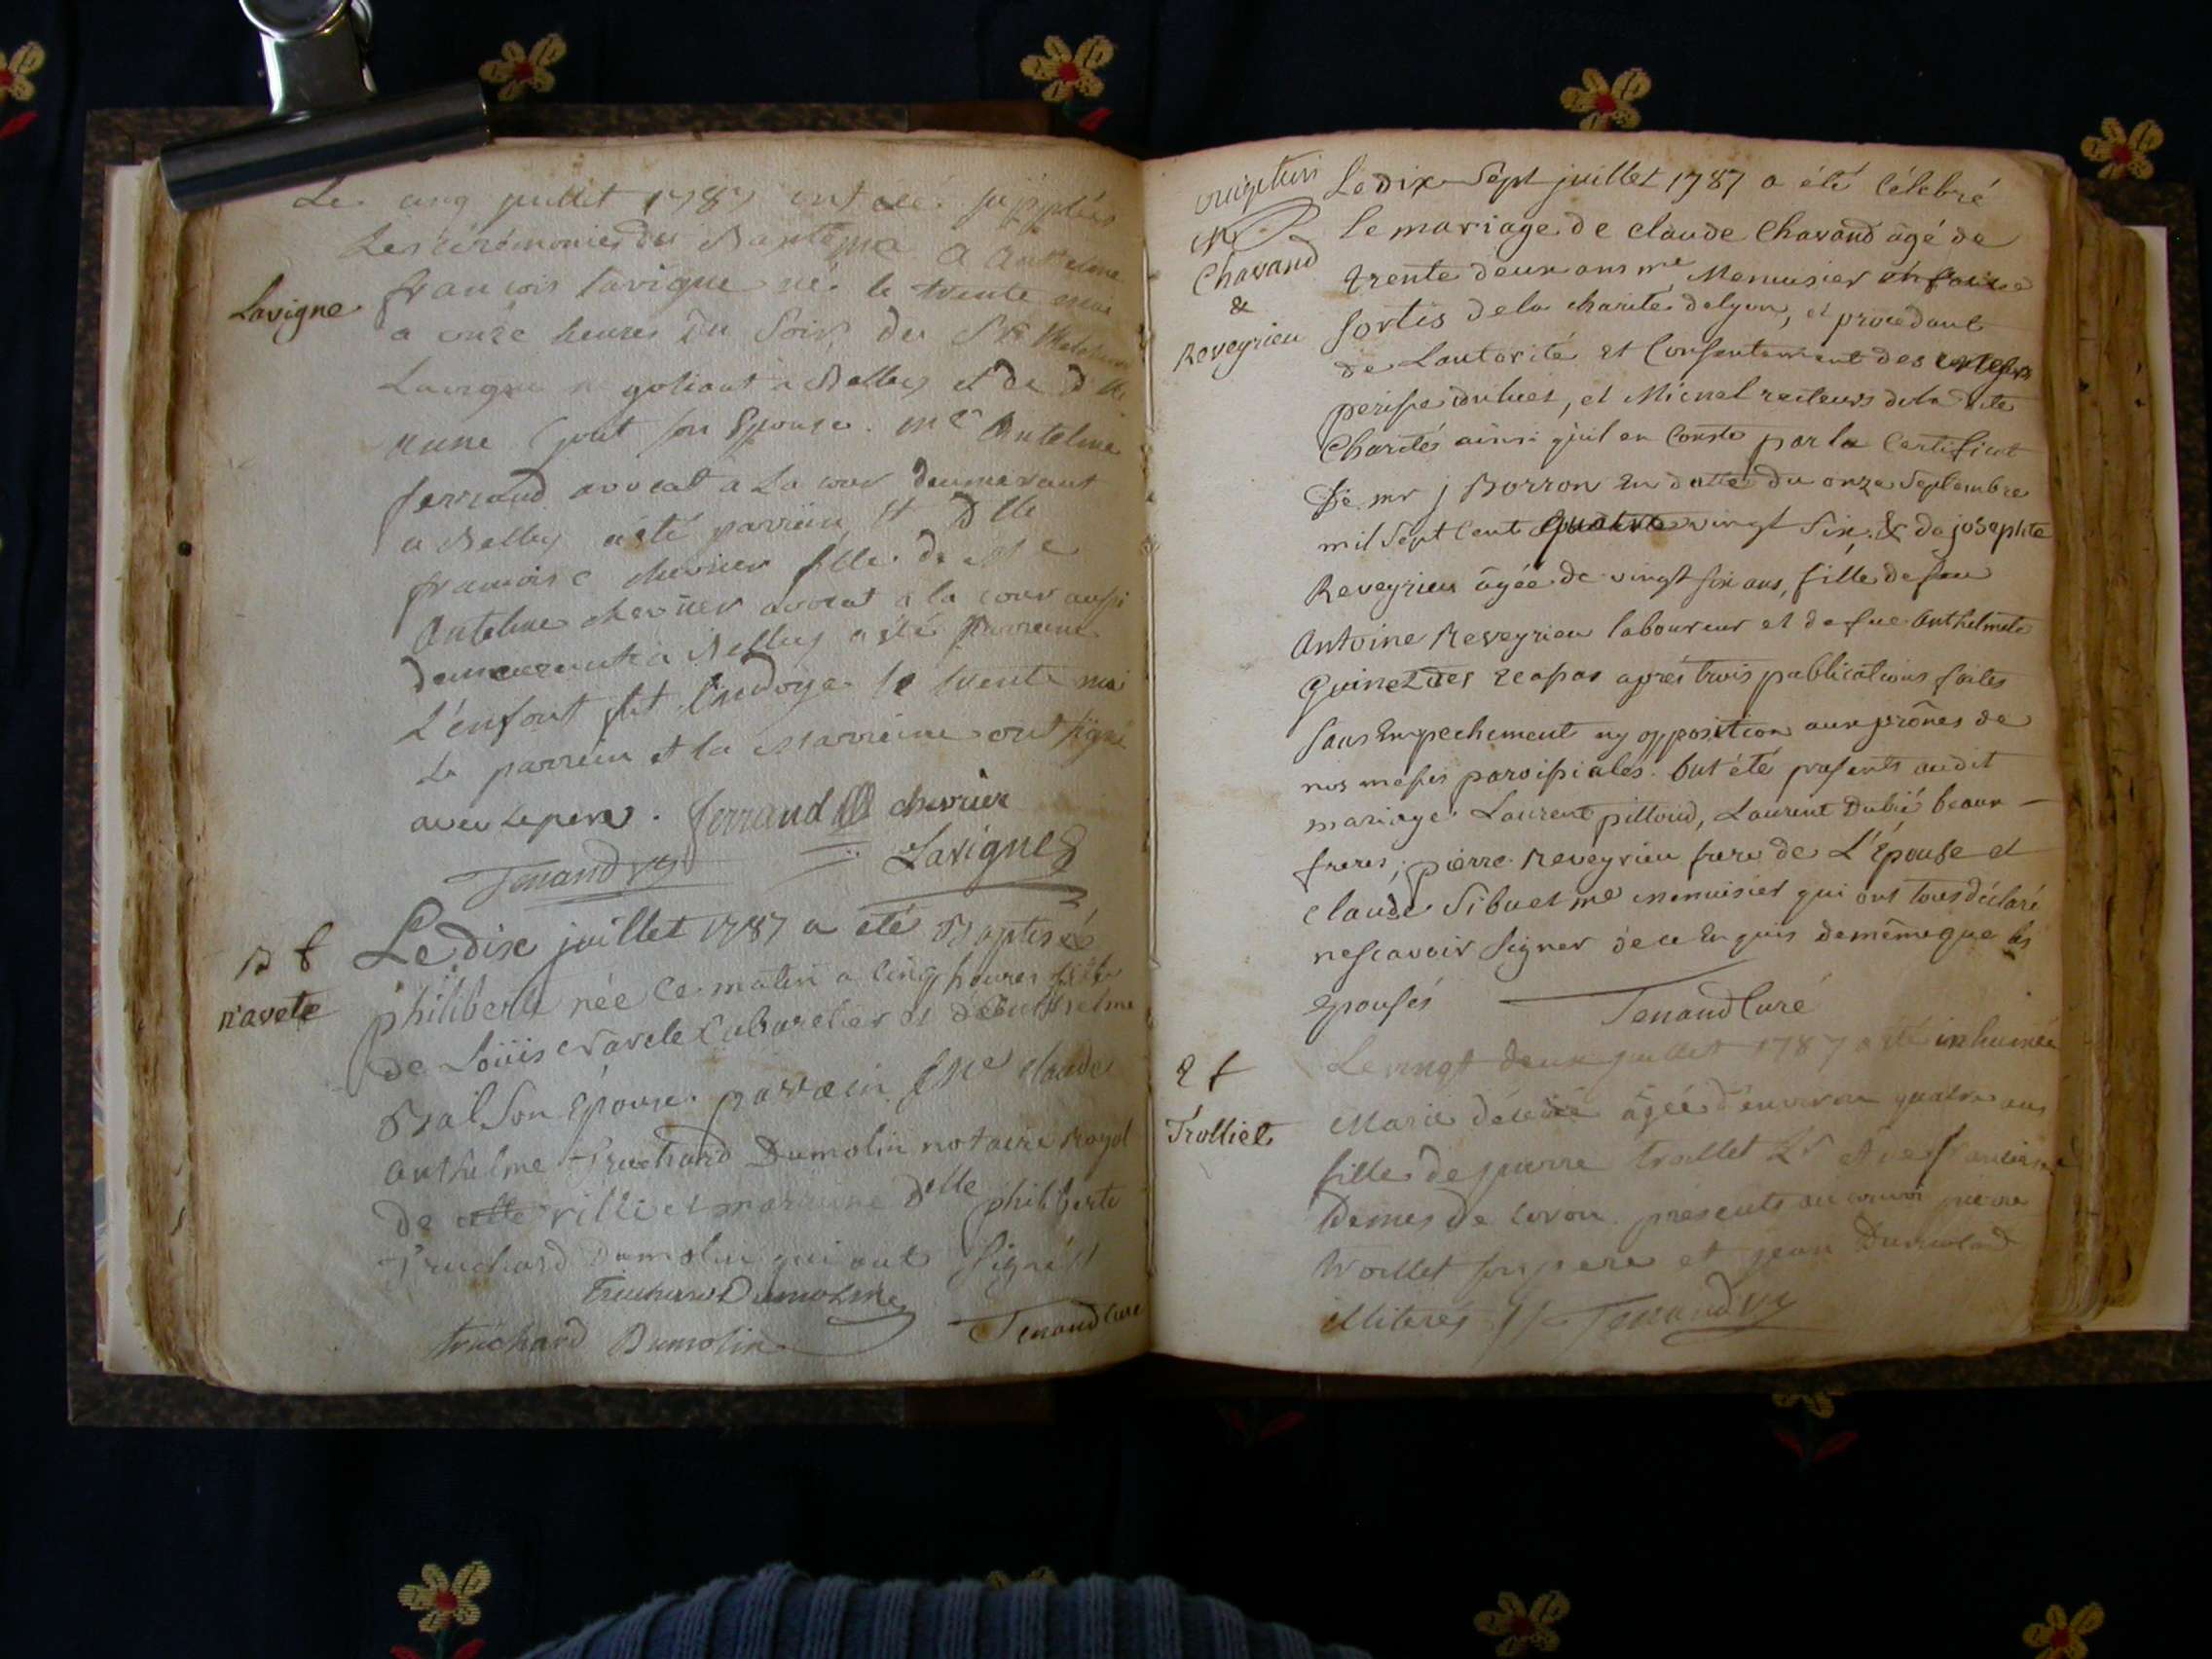 Le cinq juillet 1787 ont été supplées
Les cérémonies du Baptême a Anthelme
Lavigne
francois lavigne né le trente mai
a onze heures du Soir du Sr
Lavigne negotiant a Belley et de dlle
anne Gout son Epouse. me Antelme
ferrand avocat a La cour demeurant
a Belley a été parrein et Dlle
francoise chevrier fille de me
Antelme chevrier avocat a la cour aussi
demeurant a Belley a été marreine
L'enfant fut Endoyé le trente mai
Le parrein et la Marreine ont signé
avec le pere. ferrand chevrier
Tenand Lavigne
B f
navete
Le dix juillet 1787 a été Baptisée
philiberte née ce matin a cinq heures fille
de Loüis navete Cabaretier et d'Anthelme
Bail Son Epouse. parrein Me claude
Anthelme Truchard Dumolin notaire Royal
de cette ville et marreine dlle philiberte
Truchard Dumolin qui ont Signés
Truchard Dumolin
truchard Dumolin Tenand Curé
M
Chavand
&
Reveyrieu
Le dix Sept juillet 1787 a été Célebré
le mariage de claude Chavand âgé de
trente deux ans me Menusier
sortis de la charité de lyon, et procedant
de Lautorité et Consentement des
et Michel recteurs de la dite
Charité ainsi qu'il en Conste par le Certificat
De mr j Borron en datte du onze Septembre
mil Sept Cent quatre vingt Six, & de josephte
Reveyrieu âgée de vingt six ans, fille de feu
Antoine Reveyrieu laboureur et de fue Anthelmete
Guinet des ecapas aprés trois publications faites
sans Empechement ny opposition aux prônes de
nos messes paroissiales. Ont été presents audit
mariage Laurent pilloud, Laurent Dubié beaux-
freres, pierre Reveyrieu frere de L'Epouse et
claude Sibuet me menuisier qui ont tous déclaré
ne scavoir signer de ce Enquis de même que les
Epousés Tenand Curé
2 f
Trolliet
Le vingt deux juillet 1787 a été inhumée
Marie décédée âgée d'environ quatre ans
fille de pierre trolliet Lr et de francoise
Demes de presents au convoi pierre
trolliet son pere et jean
illiterés Tenand